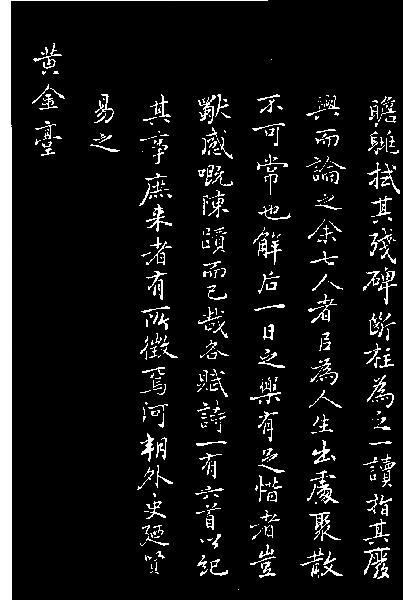 瞻拭其殘碑断柱為之一讀指其廢
興而論之余七人者㠯為人生出處聚散
不可常也解后一日之樂有足惜者豈
感嘅陳賾而已哉各賦詩一有六首以紀
其事庶来者有所徵焉河朔外史廼賢
易之
黄金臺